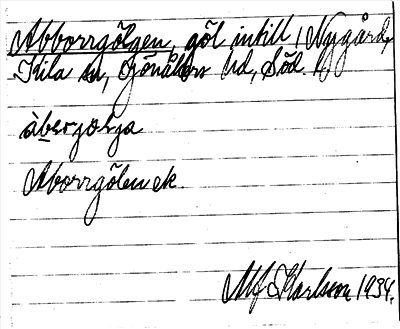 Abborrgölgen, göl intill 1 Nygård,
Kila sn, Jönåkers hd, Söd. l.,
àberjølja
Aborrgölen ek.
Karlsson 1934.